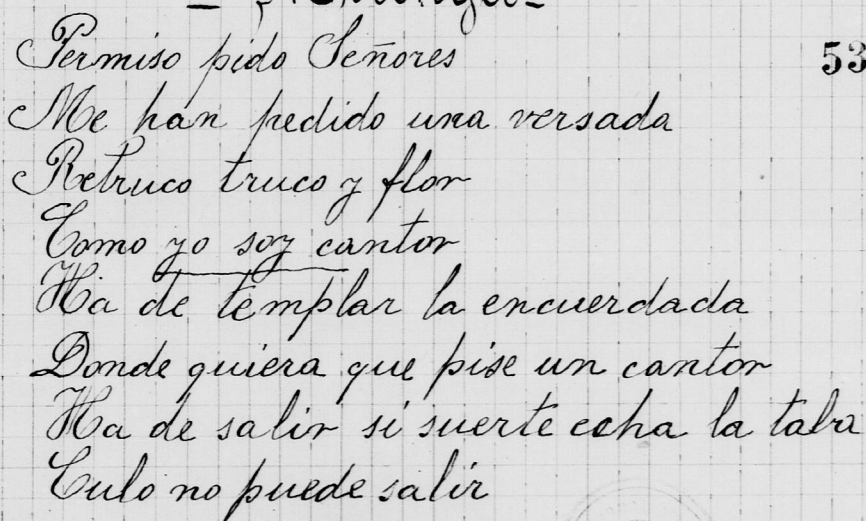 Permiso pido Señores
53
Me han pedido una versada
Retruco truco y flor
Como yo soy cantor
Ha de templar la encuerdada
Donde quiera que pise un cantor
Ha de salir si suerte echa la taba
Culo no puede salir